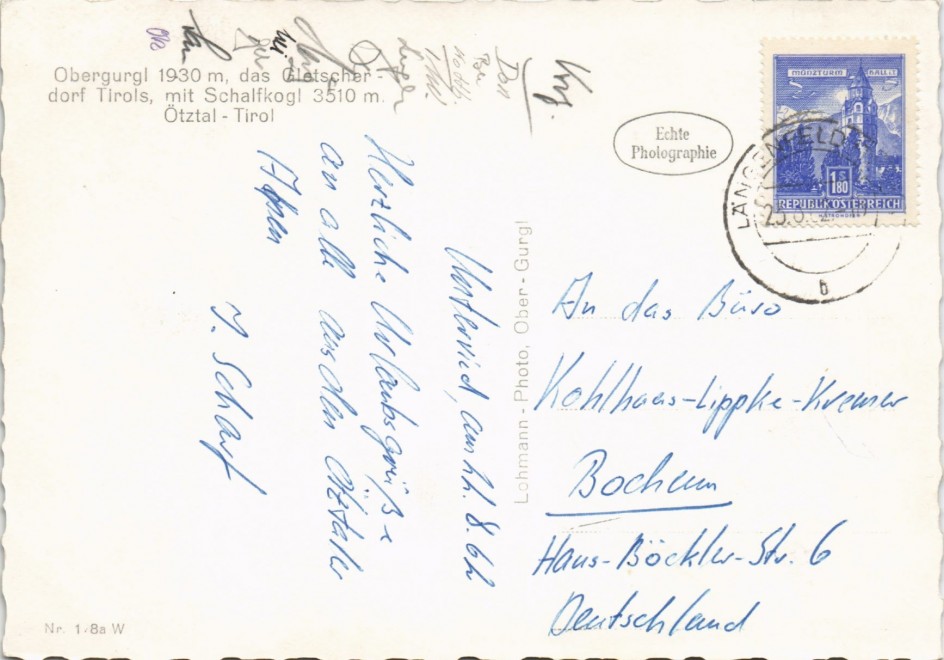 Obergurgl 1930 m, das Gletscher-
dorf Tirols, mit Schalfkogl 3510 m.
Ötztal - Tirol
Echte
Photographie
MÜNZTURM HALL i.T.
1 S 80
REPUBLIK ÖSTERREICH
LÄNGENFELD
b
Unterried, am 22.8.62
Herzliche Urlaubsgrüße
an alle aus den Ötztaler
Alpen
J. Scharf
Lohmann - Photo, Ober - Gurgl
An das Büro
Kohlhaas-Lippke-Kremer
Bochum
Hans-Böckler-Str. 6
Deutschland
Nr. 1/8a W